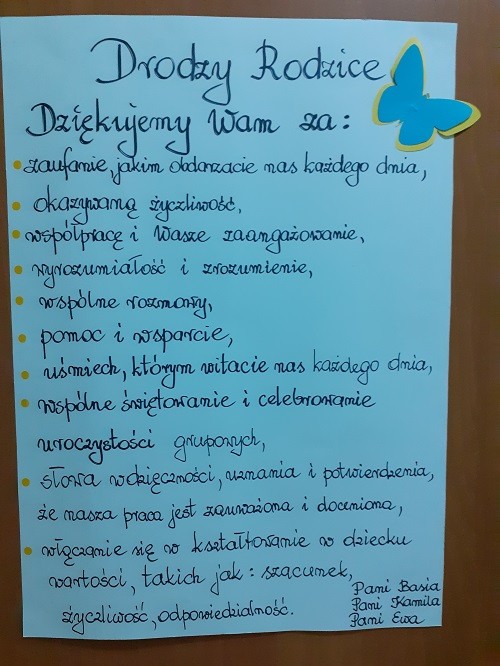 Drodzy Rodzice
Dziękujemy Wam za:
• zaufanie, jakim obdarzacie nas każdego dnia,
• okazywaną życzliwość,
• współpracę i Wasze zaangażowanie,
• wyrozumiałość i zrozumienie,
• wspólne rozmowy,
• pomoc i wsparcie,
• uśmiech, którym witacie nas każdego dnia,
• wspólne świętowanie i celebrowanie
uroczystości grupowych,
• słowa wdzięczności, uznania i potwierdzenia,
że nasza praca jest zauważona i doceniona,
• włączanie się w kształtowanie w dziecku
wartości, takich jak: szacunek,
życzliwość, odpowiedzialność.
Pani Basia
Pani Kamila
Pani Ewa